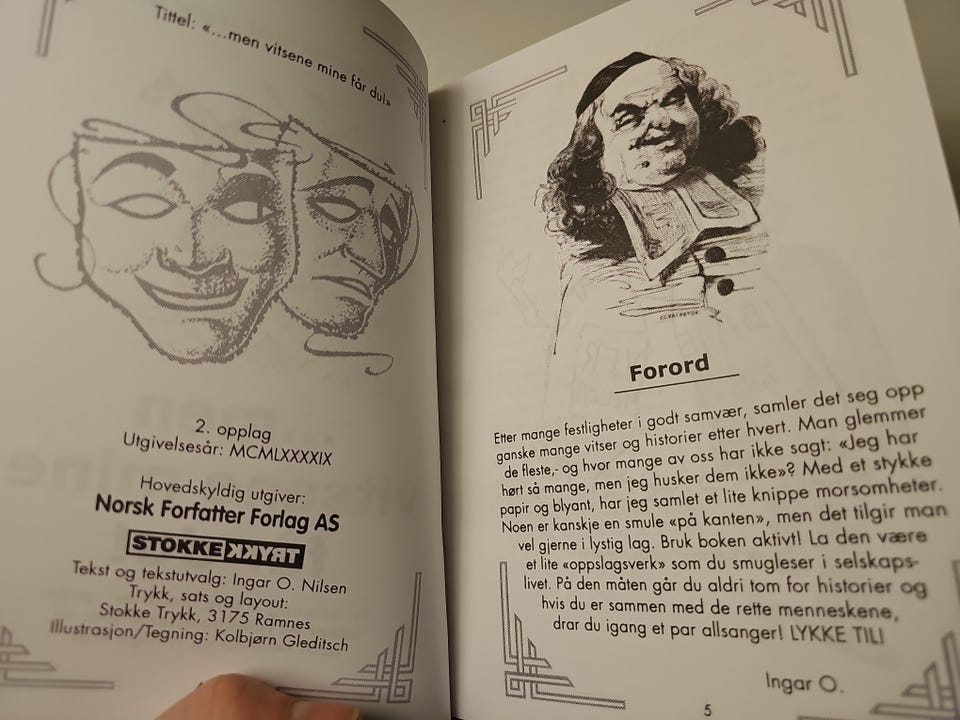 Tittel: «...men vitsene mine får du!»
2. opplag
Utgivelsesår: MCMLXXXXIX
Hovedskyldig utgiver:
Norsk Forfatter Forlag AS
STOKKE TRYKK
Tekst og tekstutvalg: Ingar O. Nilsen
Trykk, sats og layout:
Stokke Trykk, 3175 Ramnes
Illustrasjon/Tegning: Kolbjørn Gleditsch
Forord
Etter mange festligheter i godt samvær, samler det seg opp
ganske mange vitser og historier etter hvert. Man glemmer
de fleste,- og hvor mange av oss har ikke sagt: «Jeg har
hørt så mange, men jeg husker dem ikke»? Med et stykke
papir og blyant, har jeg samlet et lite knippe morsomheter.
Noen er kanskje en smule «på kanten», men det tilgir man
vel gjerne i lystig lag. Bruk boken aktivt! La den være
et lite «oppslagsverk» som du smugleser i selskaps-
livet. På den måten går du aldri tom for historier og
hvis du er sammen med de rette menneskene,
drar du igang et par allsanger! LYKKE TIL!
Ingar O.
5